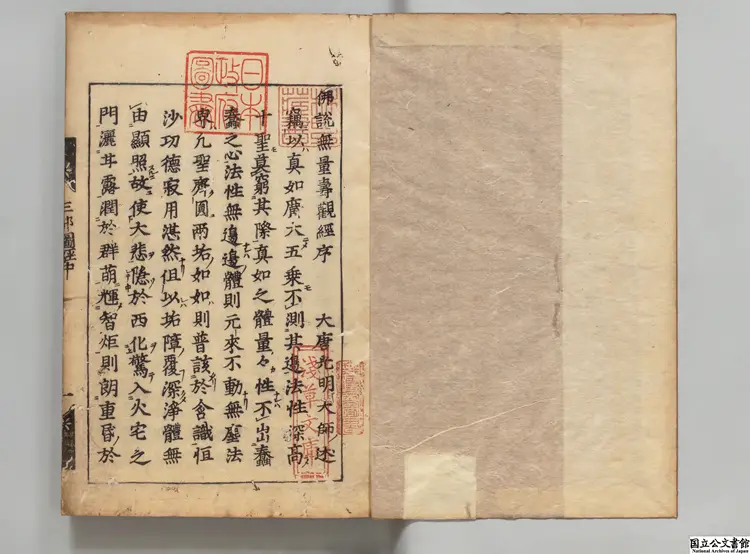 佛說無量壽觀經序　大唐光明大師述
竊以真如廣大五乘不測其邊法性深高
十聖莫窮其際真如之體量々性不出蠢
蠢之心法性無邊邊體則元來不動無塵法
界凡聖齊圓兩垢如如則普該於含識恒
沙功德寂用湛然但以垢障覆深淨體無
由顯照故使大悲隱於西化驚入火宅之
門灑甘露潤於群萌輝智炬則朗重昏於
日本政府圖書
淺草文庫
国立公文書館
National Archives of Japan